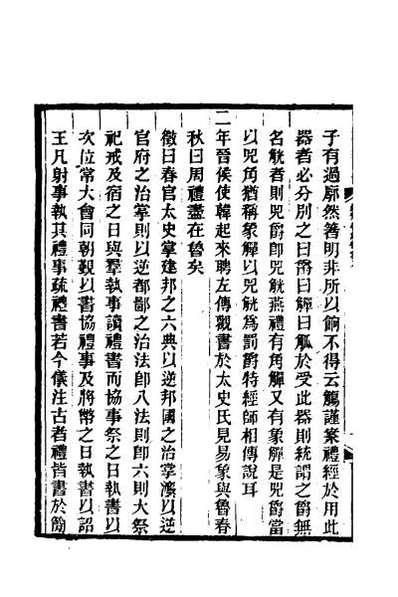 子有過廓然著明非所以餉不得云觴謹案禮經於用此
器者必分別之曰爵曰觶曰觚於受此器則統謂之爵無
名觥者則兕爵卽兕觥燕禮有角觶又有象觶是兕爵當
以兕角猶稱象觶以兕觥爲罰爵特經師相傳說耳
二年晉侯使韓起來聘左傳觀書於太史氏見易象與魯春
秋曰周禮盡在魯矣
徵曰春官太史掌建邦之六典以逆邦國之治掌灋以逆
官府之治掌則以逆都鄙之治法卽八法則卽六則大祭
祀戒及宿之日與羣執事讀禮書而協事祭之日執書以
次位常大會同朝覲以書協禮事及將幣之日執書以詔
王凡射事執其禮事疏禮書若今儀注古者禮皆書於簡